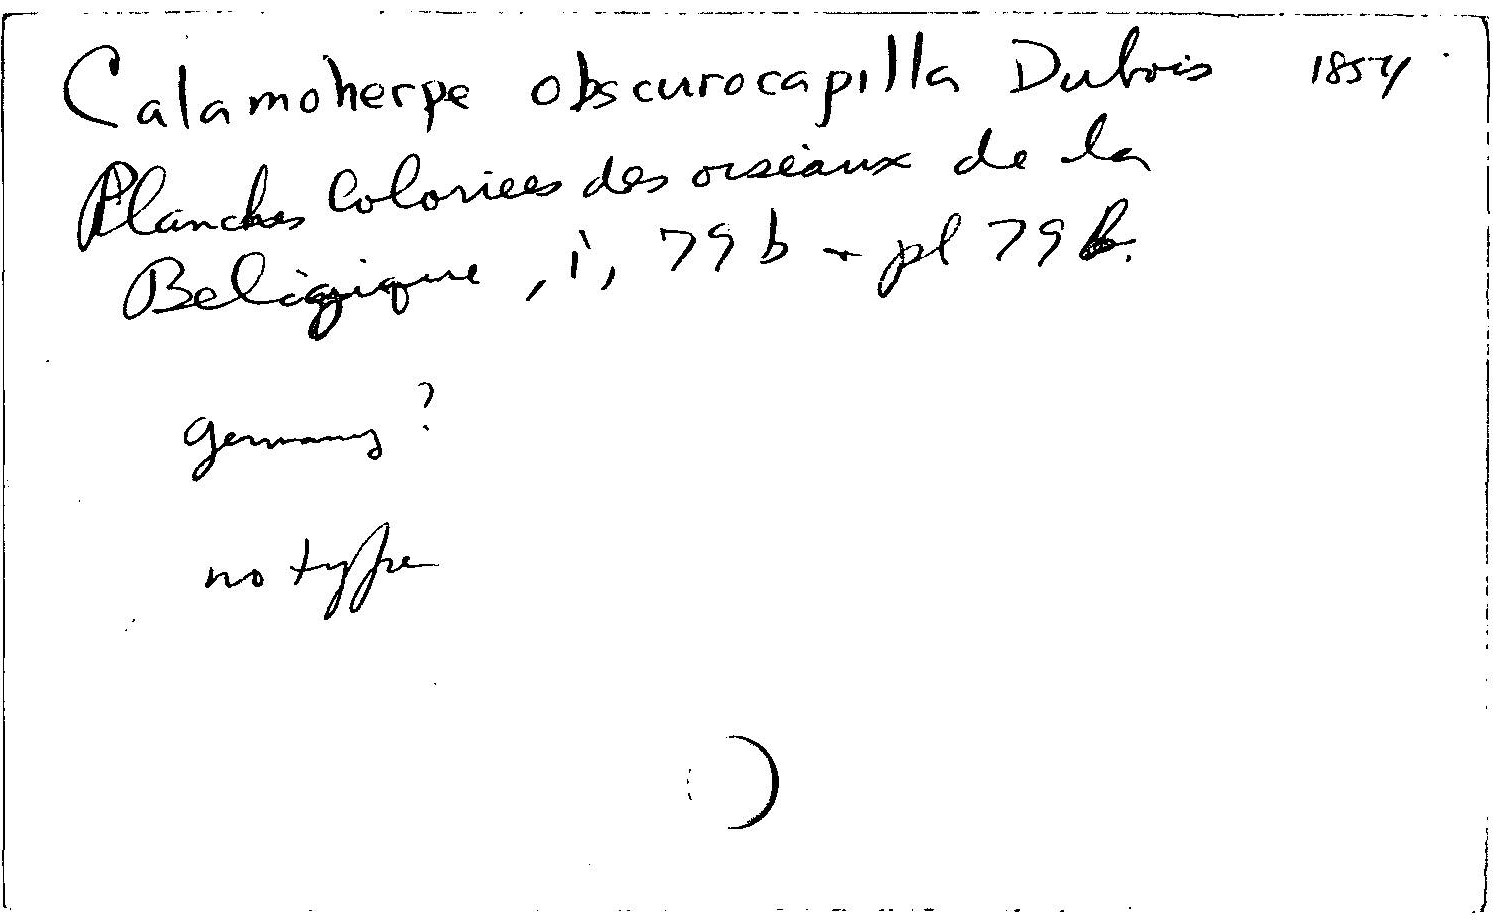 Calamoherpe obscurocapilla Dubois 1854
Planches Coloriees des oiseaux de la
Beligique, i, 79 b - pl 79 b.
Germany?
no type